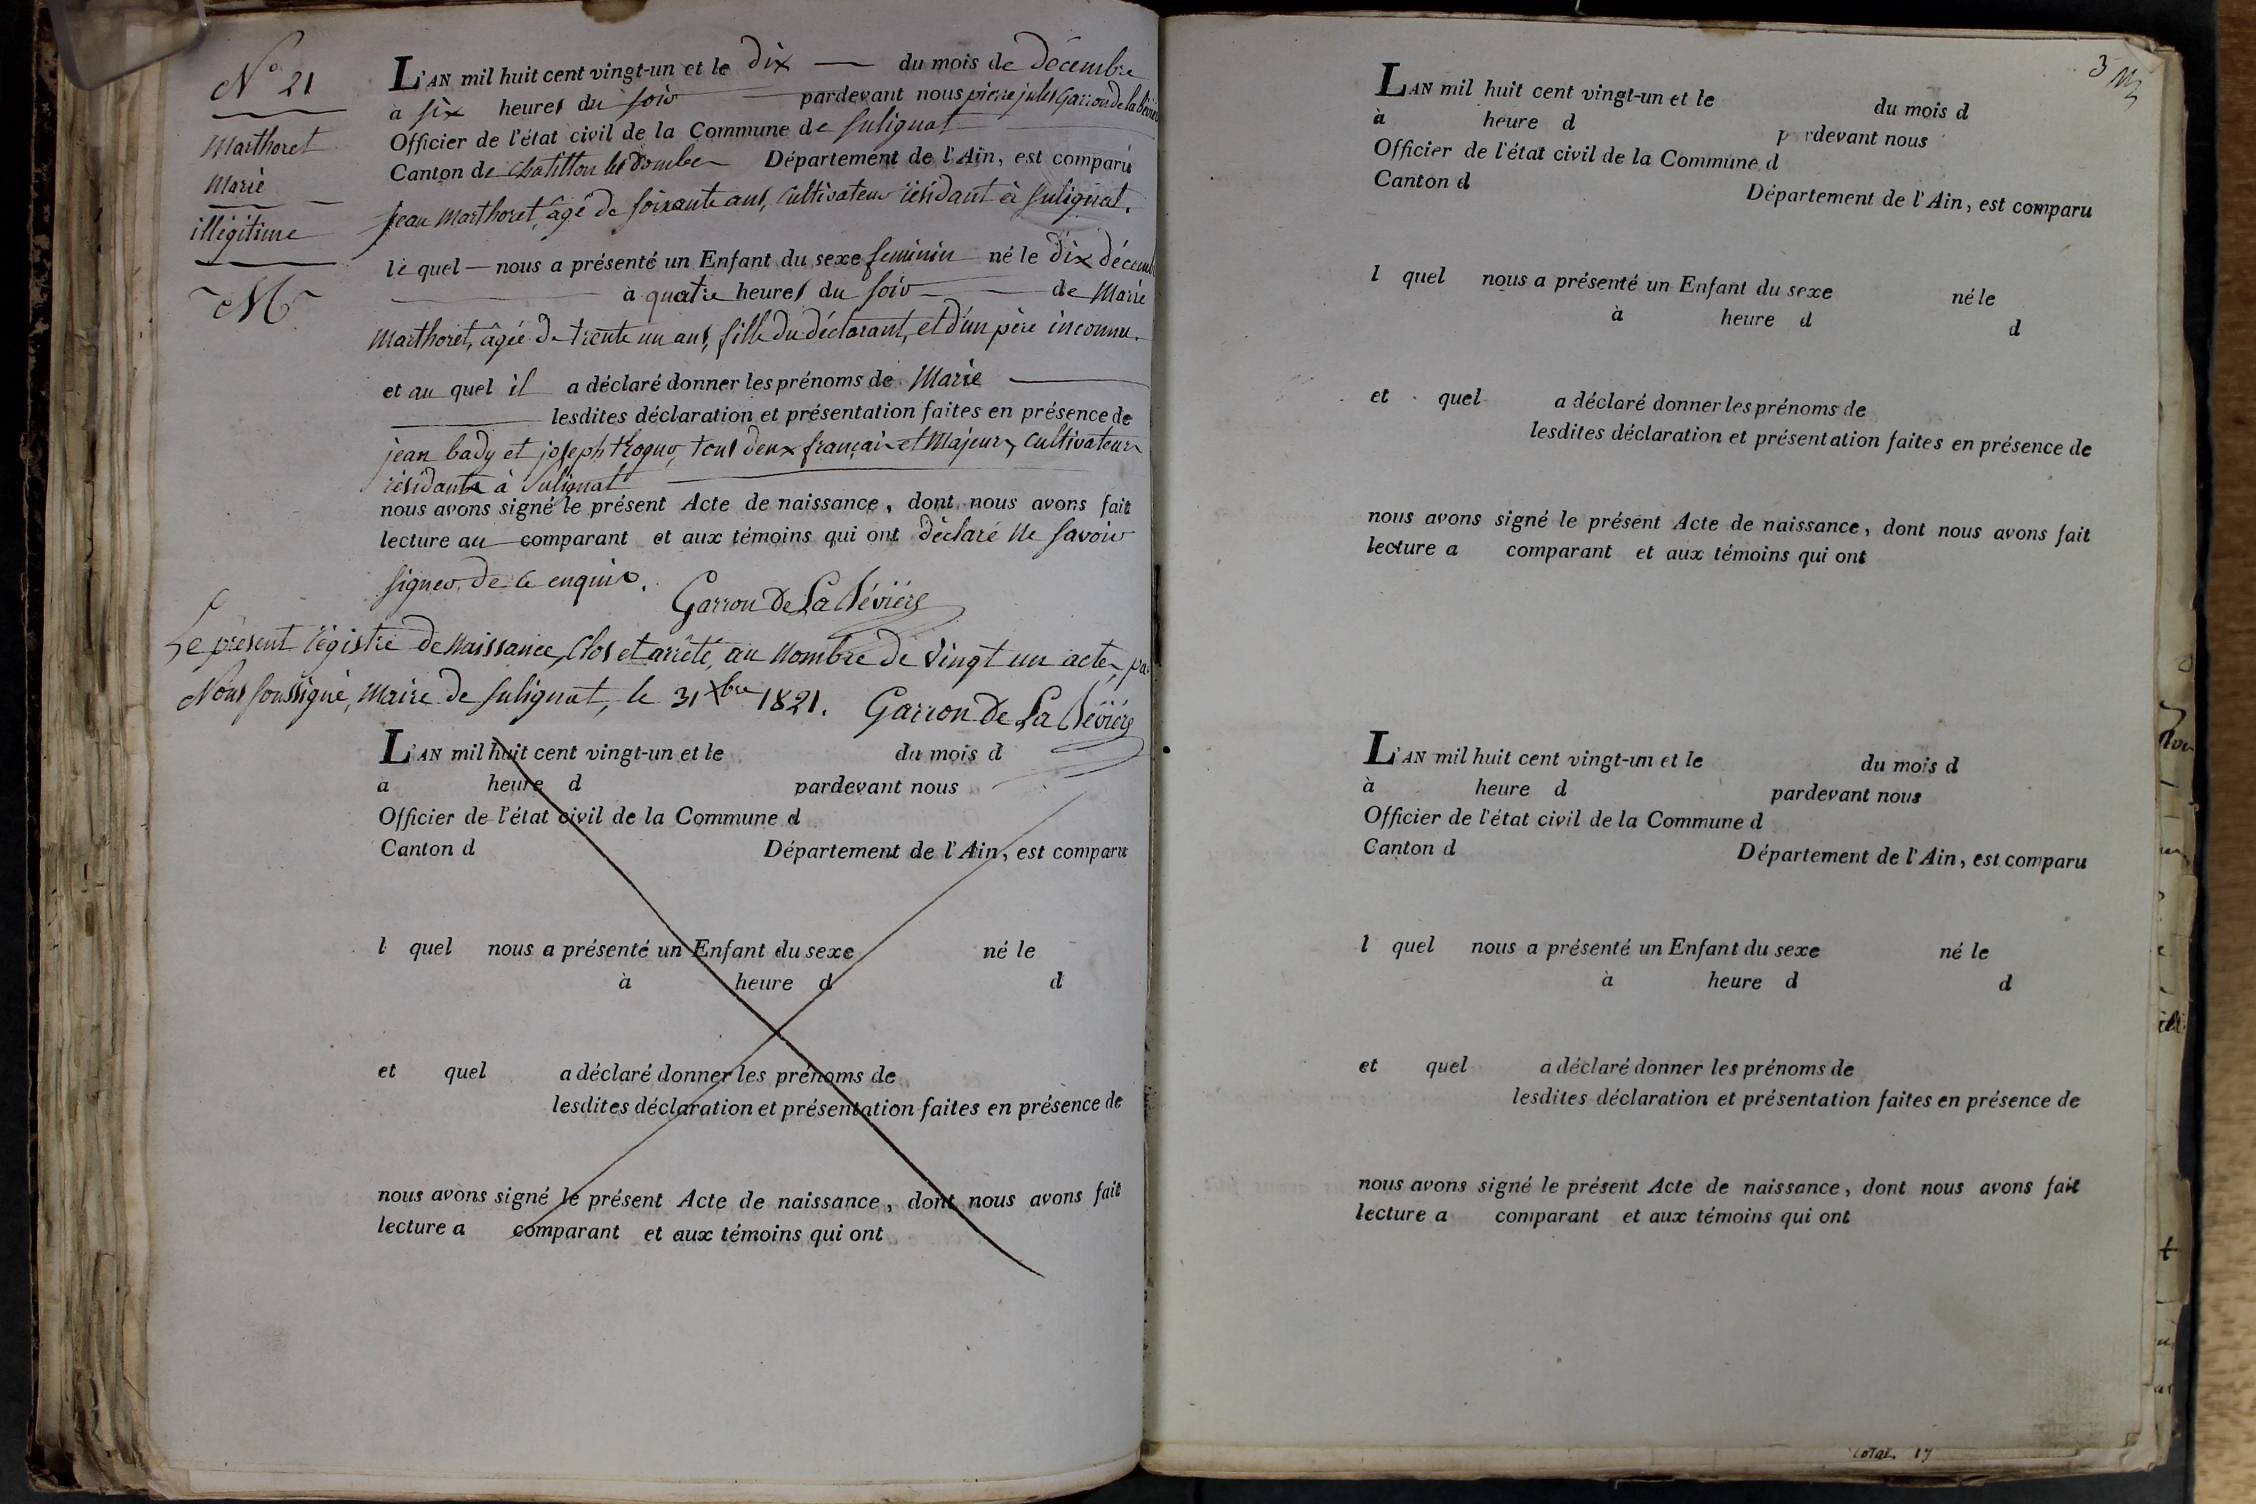 N° 21
Marthoret
Marie
illégitime
L'AN mil huit cent vingt-un et le dix du mois de décembre
à six heures du soir pardevant nous pierre jules Garron de la Bévière
Officier de l'état civil de la Commune de Sulignat
Canton de Chatillon les Dombes Département de l'Ain, est comparu
Jean Marthoret, âgé de soixante ans, cultivateur résidant à Sulignat.
le quel nous a présenté un Enfant du sexe feminin né le dix décemb
à quatre heures du soir de Marie
Marthoret, âgée de trente un ans, fille du déclarant, et d'un père inconnu.
et au quel il a déclaré donner les prénoms de Marie
lesdites déclaration et présentation faites en présence de
jean bady et joseph tous deux français et Majeurs, cultivateurs
résidants à Sulignat
nous avons signé le présent Acte de naissance, dont nous avons fait
lecture au comparant et aux témoins qui ont déclaré ne savoir
signer de ce enquis.
Garron De La Bévière
Le présent régistre de Naissance, Clos et arrêté, au Nombre de vingt un actes, par
Nous soussigné, Maire de Sulignat, le 31 Xbre 1821. Garron De La Bévière
L'AN mil huit cent vingt-un et le du mois d
à heure d pardevant nous
Officier de l'état civil de la Commune d
Canton d Département de l'Ain, est comparu
l quel nous a présenté un Enfant du sexe né le
à heure d d
et quel a déclaré donner les prénoms de
lesdites déclaration et présentation faites en présence de
nous avons signé le présent Acte de naissance, dont nous avons fait
lecture a comparant et aux témoins qui ont
3
L'AN mil huit cent vingt-un et le du mois d
à heure d pardevant nous
Officier de l'état civil de la Commune d
Canton d Département de l'Ain, est comparu
l quel nous a présenté un Enfant du sexe né le
à heure d d
et quel a déclaré donner les prénoms de
lesdites déclaration et présentation faites en présence de
nous avons signé le présent Acte de naissance, dont nous avons fait
lecture a comparant et aux témoins qui ont
L'AN mil huit cent vingt-un et le du mois d
à heure d pardevant nous
Officier de l'état civil de la Commune d
Canton d Département de l'Ain, est comparu
l quel nous a présenté un Enfant du sexe né le
à heure d d
et quel a déclaré donner les prénoms de
lesdites déclaration et présentation faites en présence de
nous avons signé le présent Acte de naissance, dont nous avons fait
lecture a comparant et aux témoins qui ont
total. 17